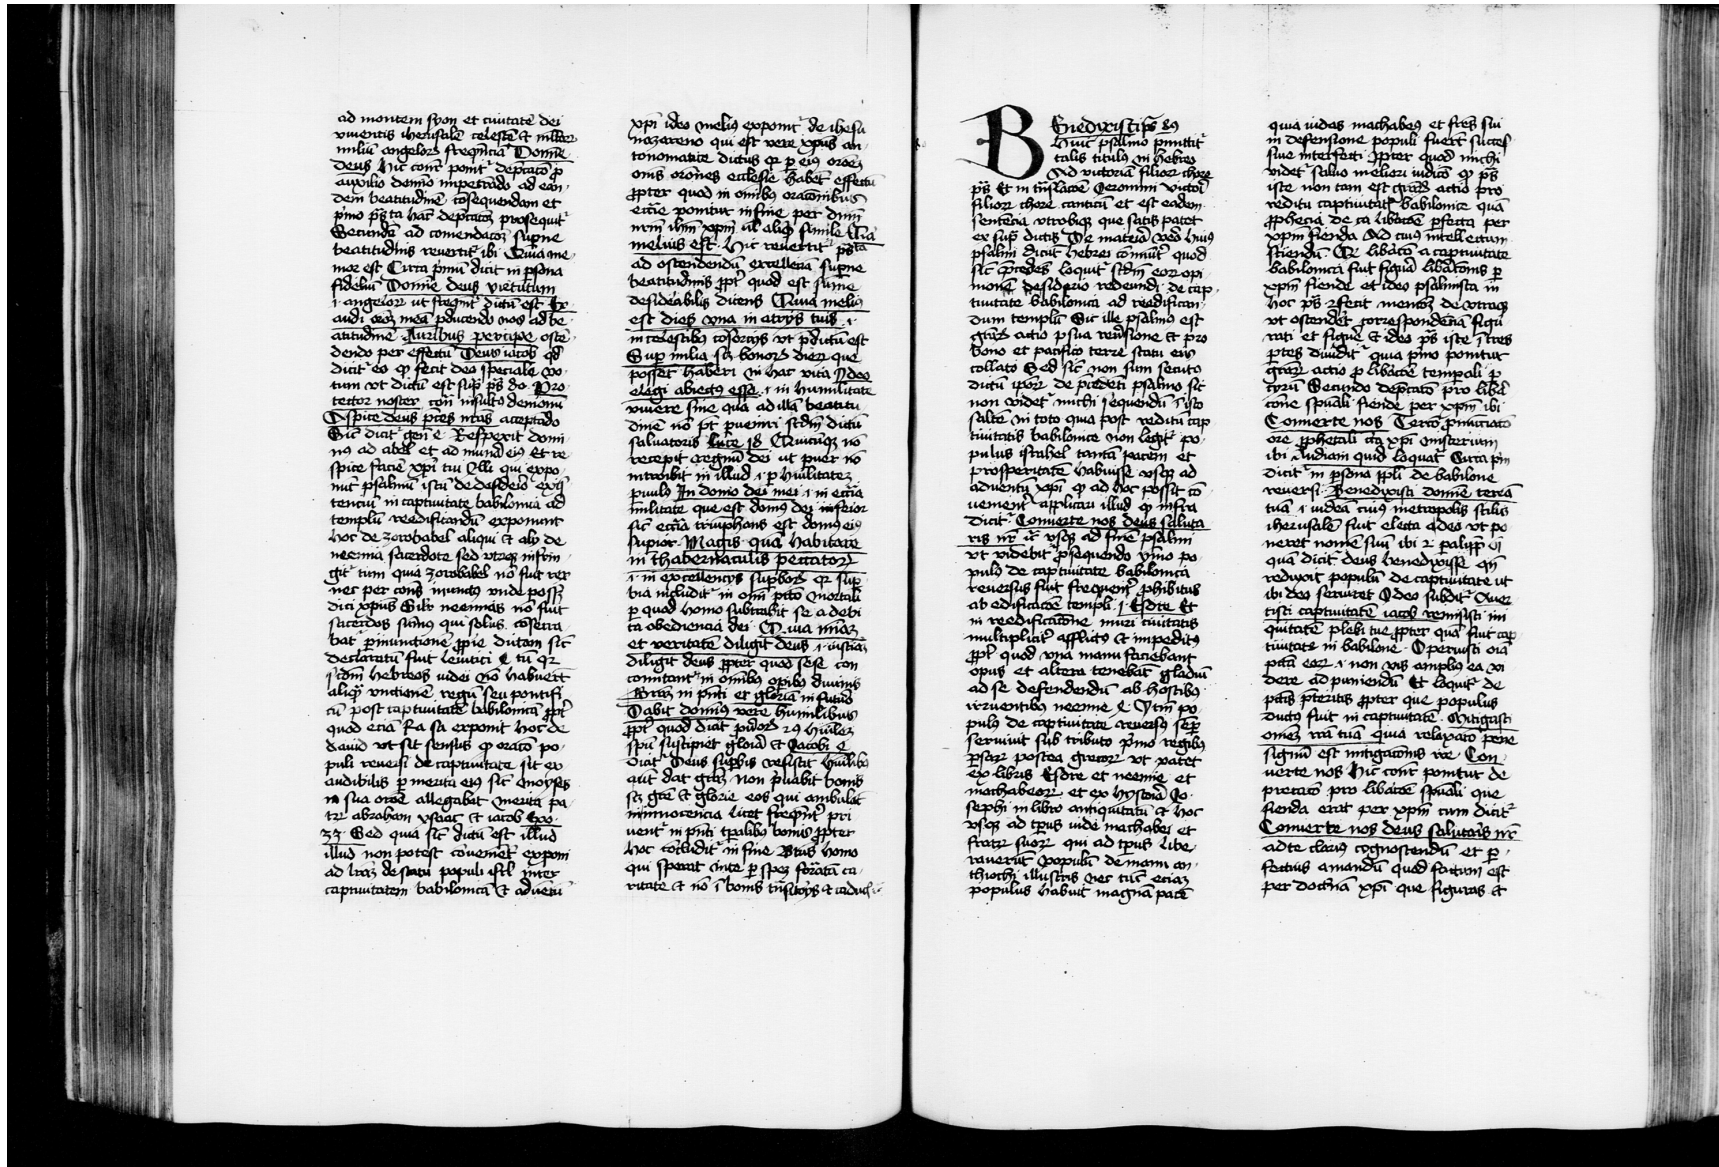 ad montem syon et ciuitatē dei
viuentis iherusalē celestē et multor
miliū angelorū frequēcia Domine
deus Hic cont ponit deprecatō p
auxilio domino impetrādo ad ean-
dem beatitudinē cōsequendam et
primo psta hāc deprecatōz prosequit
Secundū ad comendatōz supne
beatitudinis reuertit ibi Quia me-
lior est Circa primū dicit in psona
fideliū Domine deus virtutum
i angelorū ut frequent dictū est Ex-
audi orōz meā pducendo nos ad be-
atitudinē Auribus percipe ostē-
dendo per effectū Deus iacob qd
dicit eo qp fecit deo speciale vo-
tum vt dictū est sup ps 80 Pro-
tector noster contra insultus demonū
Aspice deus ptes nras acceptādo
Sic dicit gen 4 Respexit domi-
nus ad abel et ad munera eius Et re-
spice faciē xpi tui Illi qui expo-
nūt psalmū istū de desiderio exis-
tenciū in captiuitate babilonica ad
templū reedificandū exponunt
hoc de zorobabel aliqui et alij de
neemia sacerdote sed vtrumqz infrin-
git tum quia zorobabel nō fuit rex
nec per cons inunctus vnde posset
dici xpus Silr neemias nō fuit
sacerdos sumus qui solus consecra-
bat per inunctionē propie dictam sic
declaratū fuit leuitici 4 tū qr
scdm hebreos iudei nō habuert
aliqū vnctionē regū seu pontifi-
cū post captiuitatē babilonicā ppt
quod eciā Ra sa exponit hoc de
dauid vt sit sensus qp oratō po-
puli reuersi de captiuitate sit ex-
audibilis p merita eius sic moyses
in sua orōe allegabat merita pa-
trū abraham ysaac et iacob Exo
33 Sed quia sic dictū est illud
illud non potest conuenient exponi
ad lrāz de statu populi isrl inter
captiuitatem babilonicā et aduentū
xpi ideo melius exponit de ihesu
nazareno qui est vere xpus an-
tonomatice dictus qr p eius orōez
oms orōnes ecclesie habēt effectū
ppter quod in omibus oracōnibus
eccie ponitur in fine per dnm
nrm ihm xpm ul aliqd simile Quia
melius est Hic reuertit psta
ad ostendendū excellenciā supne
beatitudinis ppt quod est sume
desiderabilis dicens Quia melior
est dies vna in atrijs tuis i
in celestibus cōsorcijs vt pdictū est
Sup milia scz bonorū dierū que
possēt haberi in hac vita Ideo
elegi abiectus esse i in humilitate
viuere sine qua ad illā beatitu-
dinē nō pt pueniri scdm dictū
saluatoris luce 18 Quicūqz nō
recepit regnū dei ut puer nō
introibit in illud i p humilitatez
paruulus In domo dei mei i in eccia
militante que est domus dei inferior
sic eccia triumphans est domus eius
supior Magis quā habitare
in thabernaculis peccatorū
i in excellencijs suprborū qr sup-
bia includit in omi pctō mortali
p quod homo subtrahit se a debi-
ta obediencia dei Quia miam
et veritatē diligit deus i iusticiaz
diligit deus ppter quod sese con-
comitant in omibus opibus diuinis
Graciaz in pnti et gloriā in futuro
Dabit dominus vere humilibus
ppt quod dicit puerorū 29 humilez
spū suscipiet gloria et Iacobi 4
dicit Deus suprbis resistit humilibus
aut dat graz non priuabit bonis
scz grē et glorie eos qui ambulāt
in innocencia licet frequent pri-
uent in pnti tpalibus bonis ppter
hoc cōcludit in fine Btus homo
qui sperat in te p spez formatā ca-
ritate et nō i bonis trāsitorijs et caducis
Benedixisti ps 84
Huic psalmo pmittit
talis titulus in hebreo
Ad victoriā filiorū chore
ps Et in trāslacōe Ieronimi victori
filiorū chore canticū et est eadem
sentēcia vtrobiqz que satis patet
ex sup dictis De materia vero huius
psalmi dicūt hebrei cōmūnit quod
sic pcedēs loquit scdm eorū opi-
nionē desiderio redeundi de cap-
tiuitate babilonica ad reedifican-
dum templū Sic ille psalmus est
graz actio p sua reuersione et pro
bono et pacifico terre statu eis
collato Sed sic non sum secuto
dictū ipsorū de pcedēti psalmo sic
non videt michi sequendū i isto
saltē in toto quia post reditū cap-
tiuitatis babilonice non legit po-
pulus israhel tantā pacem et
prosperitatē habuisse vsqz ad
aduentū xpi qp ad hoc possit cō-
uenient applicari illud qp infra
dicit Conuerte nos deus saluta-
ris nr et vsqz ad finē psalmi
vt videbit psequendo Imo po-
pulus de captiuitate babilonica
reuersus fuit frequent prohibitus
ab edificacōe templi i Esdre Et
in reedificacōne muri ciuitatis
multiplicit afflictus et impeditus
ppt quod vna manu faciebant
opus et altera tenebāt gladiū
ad se defendendū ab hostibus
irruentibus neemie 4 Item po-
pulus de captiuitate reuersus semp
seruiuit sub tributo primo regibus
persarū postea grecorū vt patet
ex libris Esdre et neemie et
machabeorū et ex hystoria Io-
sephi in libro antiquitatū et hoc
vsqz ad tpus iude machabei et
fratrū suorū qui ad tpus libe-
rauerūt populū de manu an-
thiochi illustris nec tūc eciaz
populus habuit magnā pacē
quia iudas machabeus et frēs sui
in defensione populi fuert succes-
siue interfecti ppter quod michi
videt saluo meliori iudicō qp ps
iste non tam est graz actio pro
reditu captiuitatis babilonice quā
pphecia de ca libacōe pfecta per
xpm fienda Ad cuius intellectum
sciendū qp libacō a captiuitate
babilonica fuit figura libacōnis p
xpm fiende et ideo psalmista in
hoc ps fecit mencōz de vtraqz
vt ostendēt correspondēciā figu-
rati et figure et ideo ps iste i tres
ptes diuidit quia primo ponitur
graz actio p libacōe tempali p
cyrū Secundo deprecatō pro libā-
cōne spuali fiende per xpm ibi
Conuerte nos Tercō pnuciatō
ore pphetali circa xpi misterium
ibi Audiam quid loquat Circa pm
dicit in psona ppli de babilone
reuersi Benedixisti domine terrā
tuā i iudeā cuius metropolis scilis
iherusalē fuit electa a deo vt po-
neret nomē suū ibi 2 paliipp 6
quā dicit deus benedixisse qn
reduxit populū de captiuitate ut
ibi deo seruiret Ideo subdit Auer-
tisti captiuitatē iacob remisisti ini-
quitatē plebi tue ppter quā fuit cap-
tiuitate in babilone Operuisti oia
pcta eorū i non vis amplius ea vi-
dere ad puniendū Et loquit de
pctis pteritis ppter que populus
ductus fuit in captiuitate Mitigasti
omez irā tuā quia relaxatō pene
signū est mitigacōnis ire Con-
uerte nos Hic cont ponitur de-
precatō pro libacōe spuali que
fienda erat per xpm cum dicit
Conuerte nos deus salutaris nr
ad te clarius cognoscendū et p-
fectius amandū quod factum est
per doctrinā xpi que figuras et